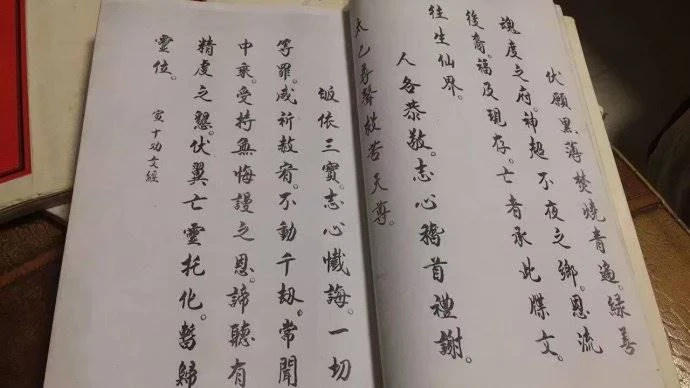 伏願黑簿焚燒青過。緣善
魂度之府。神超不夜之鄉。恩流
後裔。福及現存。亡者承此牒文。
往生仙界。
人各恭敬。志心稽首禮謝。
太乙尋聲救苦天尊。
皈依三寶。志心懺誨。一切
等罪。咸祈赦宥。不動千劫。常聞
中乘。受持無悔謾之恩。諦聽有
精虔之懇。伏冀亡靈托化。暫歸
靈位。
宣十功文經